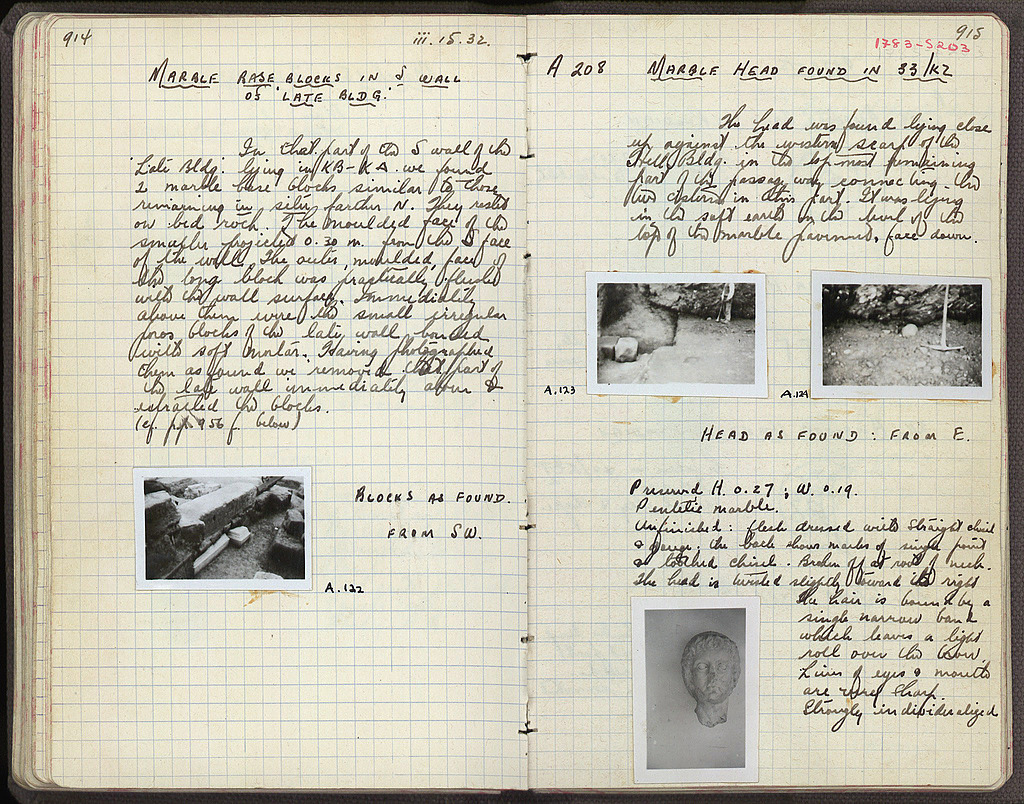 914
iii.15.32.
MARBLE BASE BLOCKS IN S WALL
OF 'LATE BLDG.'
In that part of the S wall of the
'Late Bldg.' lying in KB-KA we found
2 marble base blocks similar to those
remaining in situ farther N. They rested
on bed rock. The moulded face of the
smaller projected 0.30 m. from the S face
of the wall. The outer, moulded face of
the long block was practically flush
with the wall surface. Immediately
above them were the small irregular
poros blocks of the late wall, bonded
with soft mortar. Having photographed
them as found we removed that part of
the late wall immediately above &
extracted the blocks.
(cf. pp. 956 f. below)
BLOCKS AS FOUND.
FROM SW.
A.122
915
1783-S203
A 208 MARBLE HEAD FOUND IN 33/KZ
The head was found lying close
up against the western scarp of the
Hell. Bldg. in the top-most remaining
part of the passage way connecting the
two cisterns in this part. It was lying
in the soft earth on the level of the
top of the marble pavement, face down.
A.123
A.124
HEAD AS FOUND: FROM E.
Preserved H. 0.27; W. 0.19.
Pentelic marble.
Unfinished: flesh dressed with straight chisel
& gouge; the back shows marks of single point
& toothed chisel. Broken off at root of neck.
The head is twisted slightly toward its right
The hair is bound by a
single narrow band
which leaves a light
roll over the brow.
Lines of eyes & mouth
are very sharp.
Strongly individualized